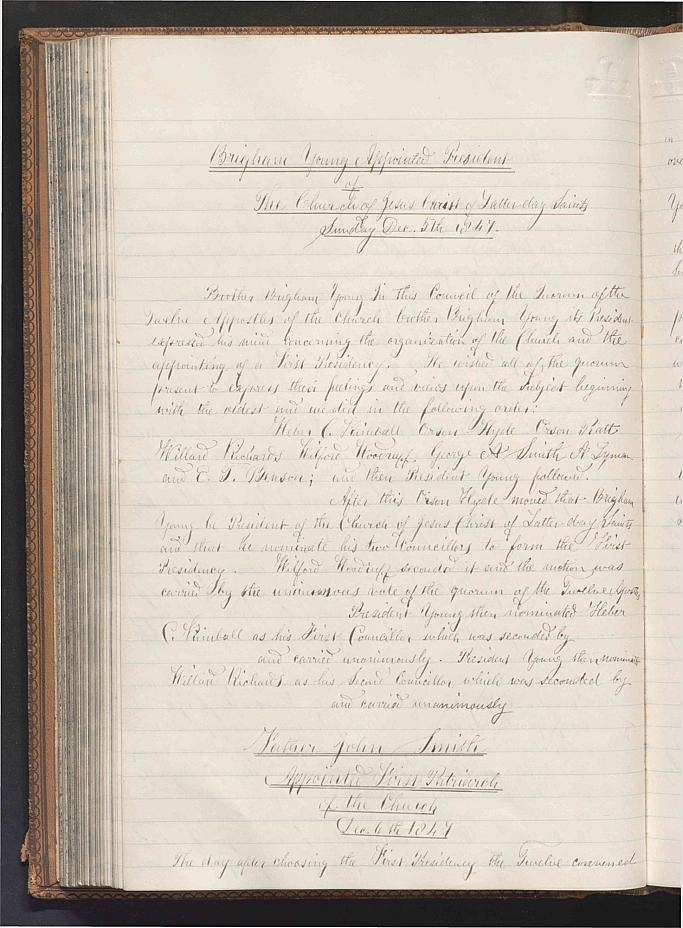 Brigham Young Appointed President
of
The Church of Jesus Christ of Latter day Saints
Sunday Dec. 5th 1847.
Brother Brigham Young In this Council of the Quorum of the
Twelve Appostles of the Church brother Brigham Young its President
expressed his mind concerning the organization of the Church and the
appointing of a First Presidency. He wished all of the quorum
present to express their feelings and views upon the subject beginning
with the oldest and we did in the following order:
Heber C. Kimball Orson Hyde Orson Pratt
Willard Richards Wilford Woodruff, George A Smith A Lyman
and E. T. Benson; and then President Young followed.
After this Orson Hyde moved that Brigham
Young be President of the Church of Jesus Christ of Latter day Saints
and that he nominate his two Councillors to form the First
Presidency. Wilford Woodruff seconded it and the motion was
carried by the unanimous vote of the quorum of the Twelve Apostles
President Young then nominated Heber
C. Kimball as his First Councillor which was seconded by
and carried unanimously. President Young then nominated
Willard Richards as his Second Councillor which was seconded by
and carried unanimously
Father John Smith
Appointed First Patriarch
of the Church
Dec. 6th 1847
The day after choosing the First Presidency the Twelve convened